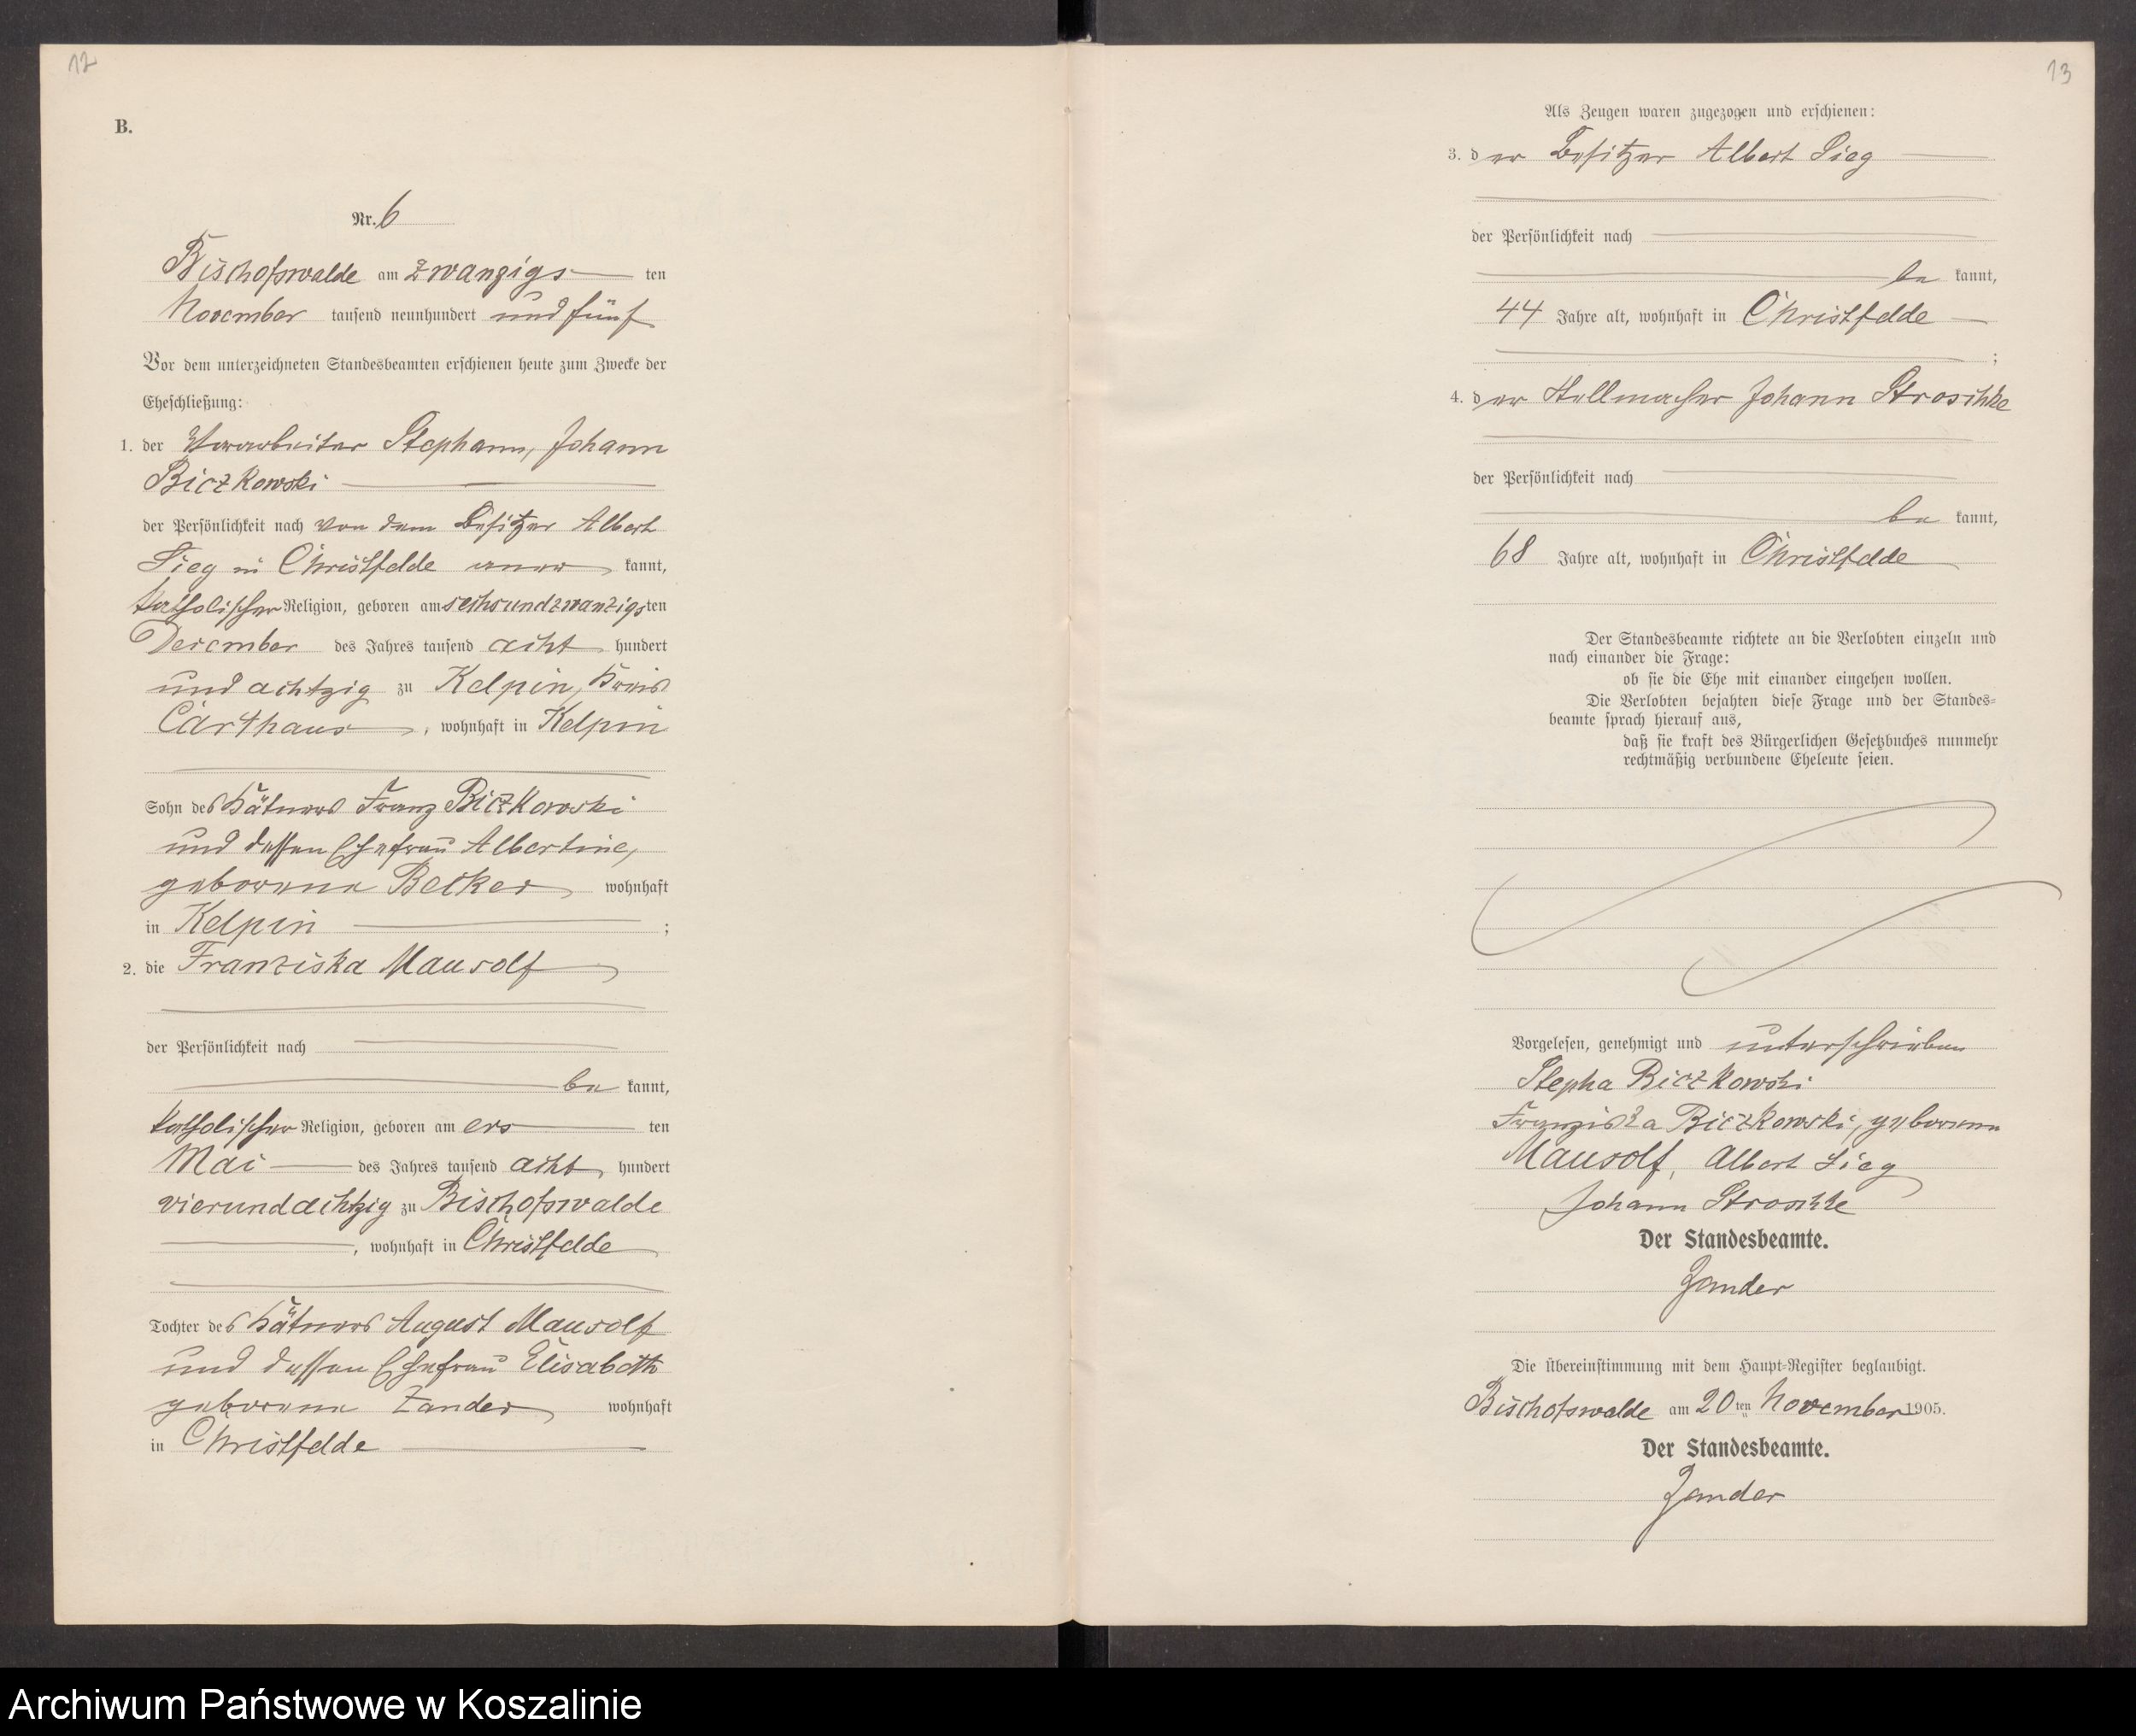 12
B.
Nr. 6
Bischofswalde am zwanzigs ten
November tausend neunhundert und fünf
Vor dem unterzeichneten Standesbeamten erschienen heute zum Zwecke der
Eheschließung:
1. der Vorarbeiter Stephann, Johann
Biczkowski
der Persönlichkeit nach von dem Besitzer Albert
Sieg in Christfelde aner kannt,
katholischer Religion, geboren am sechsundzwanzigsten
Dezember des Jahres tausend acht hundert
und achtzig zu Kelpin, Kreis
Carthaus, wohnhaft in Kelpin
Sohn des Kätners Franz Biczkowski
und dessen Ehefrau Albertine,
geborene Becker wohnhaft
in Kelpin ;
2. die Franziska Mausolf
der Persönlichkeit nach
be kannt,
katholischer Religion, geboren am ers ten
Mai des Jahres tausend acht hundert
vierundachtzig zu Bischofswalde
, wohnhaft in Christfelde
Tochter des Kätners August Mausolf
und dessen Ehefrau Elisabeth
geborene Zander wohnhaft
in Christfelde
13
Als Zeugen waren zugezogen und erschienen:
3. der Besitzer Albert Sieg
der Persönlichkeit nach
be kannt,
44 Jahre alt, wohnhaft in Christfelde
;
4. der Stellmacher Johann Stroschke
der Persönlichkeit nach
be kannt,
68 Jahre alt, wohnhaft in Christfelde
Der Standesbeamte richtete an die Verlobten einzeln und
nach einander die Frage:
ob sie die Ehe mit einander eingehen wollen.
Die Verlobten bejahten diese Frage und der Standes=
beamte sprach hierauf aus,
daß sie kraft des Bürgerlichen Gesetzbuches nunmehr
rechtmäßig verbundene Eheleute seien.
Vorgelesen, genehmigt und unterschrieben
Stepha Biczkowski
Franziska Biczkowski, geborene
Mausolf, Albert Sieg
Johann Stroschke
Der Standesbeamte.
Zander
Die Übereinstimmung mit dem Haupt=Register beglaubigt.
Bischofswalde am 20 ten November 1905.
Der Standesbeamte.
Zander
Archiwum Państwowe w Koszalinie